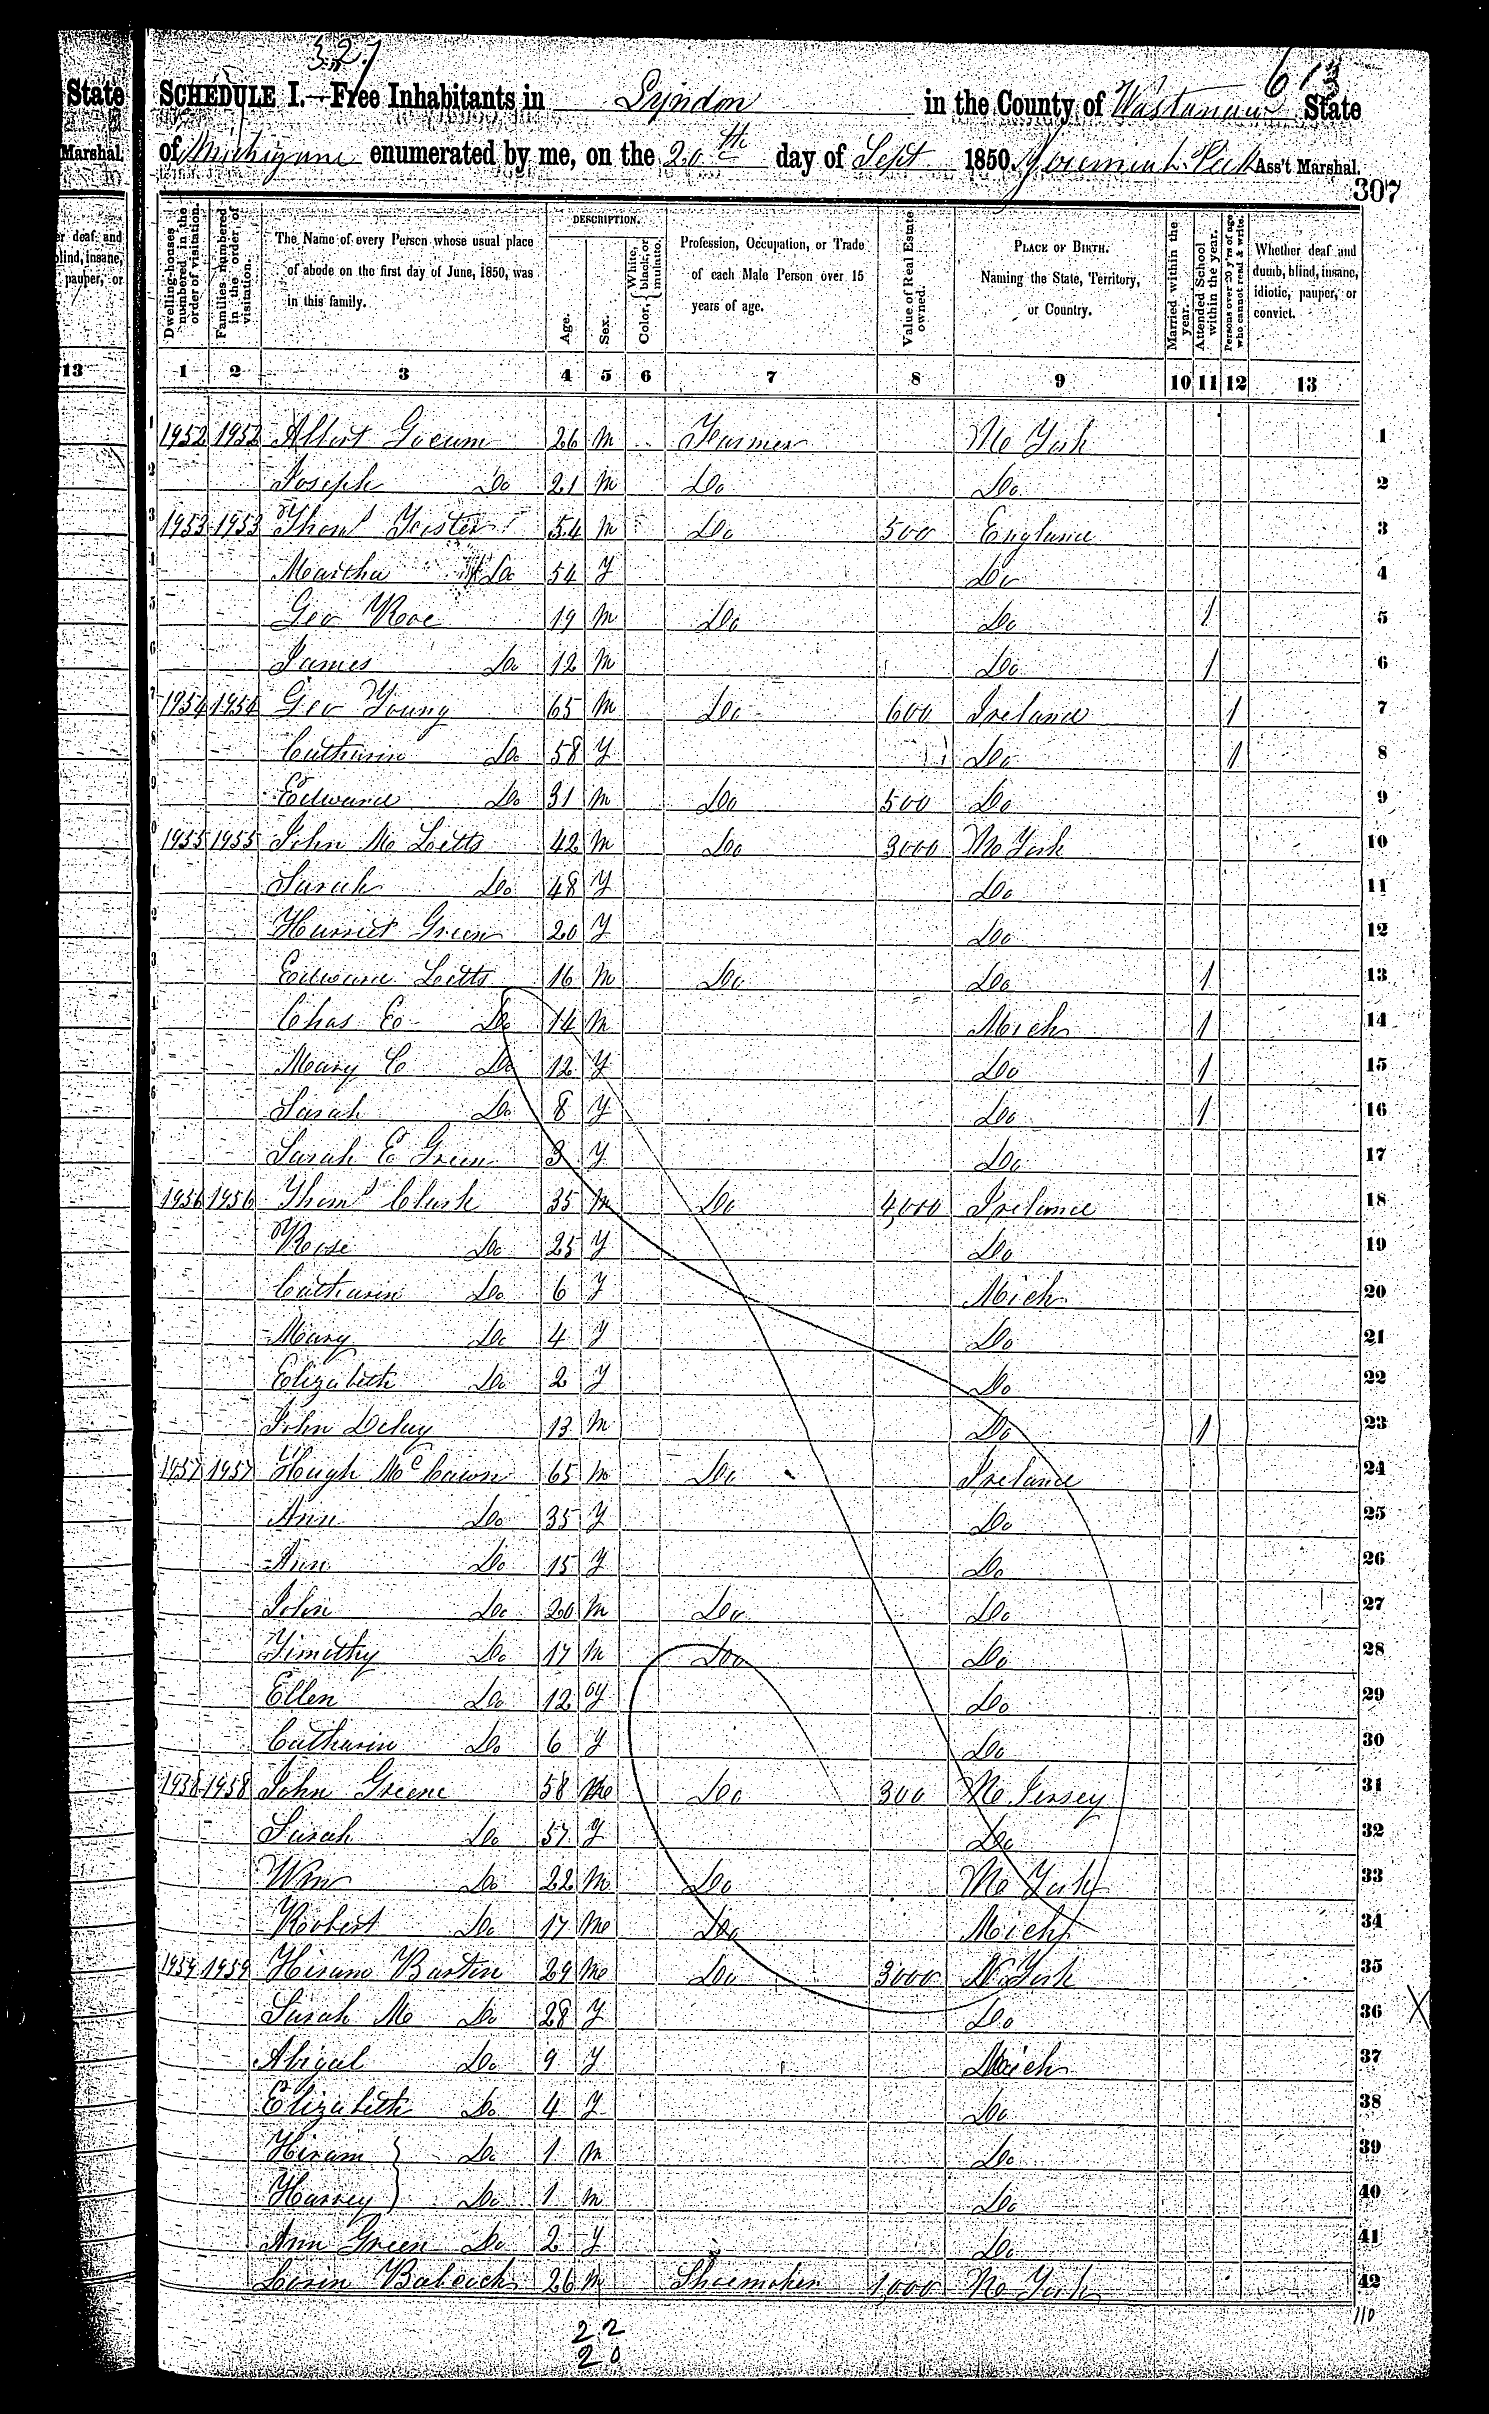 327
613
State
SCHEDULE I.—Free Inhabitants in Lyndon in the County of Wastanaw State
Marshal. of Michigane enumerated by me, on the 20th day of Sept 1850. Jeremiah Peck Ass't Marshal.
307
DESCRIPTION.
Dwelling-houses numbered in the order of visitation.
Families numbered in the order of visitation.
The Name of every Person whose usual place of abode on the first day of June, 1850, was in this family.
Age.
Sex.
Color, { White, black, or mulatto.
Profession, Occupation, or Trade of each Male Person over 15 years of age.
Value of Real Estate owned.
PLACE OF BIRTH. Naming the State, Territory, or Country.
Married within the year.
Attended School within the year.
Persons over 20 y'rs of age who cannot read & write.
Whether deaf and dumb, blind, insane, idiotic, pauper, or convict.
13 1 2 3 4 5 6 7 8 9 10 11 12 13
1 1952 1952 Albert Gocum 26 M Farmer N. York 1
2 Joseph Do 21 M Do Do 2
3 1953 1953 Thoms Foister 54 M Do 500 England 3
Martha Do 54 F Do 4
Geo Roe 19 M Do Do 1 5
James Do 12 M Do 1 6
1954 1954 Geo Young 65 M Do 600 Ireland 1 7
Catharin Do 58 F Do 1 8
Edward Do 31 M Do 500 Do 9
1955 1955 John M Letts 42 M Do 3000 N. York 10
Sarah Do 48 F Do 11
Harriet Green 20 F Do 12
Edward Letts 16 M Do Do 1 13
Chas E Do 14 M Mich 1 14
Mary C Do 12 F Do 1 15
Sarah Do 8 F Do 1 16
Sarah E Green 3 F Do 17
1956 1956 Thoms Clark 35 M Do 4,000 Ireland 18
Rose Do 25 F Do 19
Catharin Do 6 F Mich 20
Mary Do 4 F Do 21
Elizabeth Do 2 F Do 22
John Delay 13 M Do 1 23
1957 1957 Hugh McCawn 65 M Do Ireland 24
Ann Do 35 F Do 25
Ann Do 15 F Do 26
John Do 20 M Do Do 27
Timothy Do 17 M Do Do 28
Ellen Do 12 F Do 29
Catharin Do 6 F Do 30
1958 1958 John Greene 58 M Do 300 N. Jersey 31
Sarah Do 57 F Do 32
Wm Do 22 M Do N. York 33
Robert Do 17 M Do Mich 34
1959 1959 Hiram Barton 29 M Do 3000 N. York 35
Sarah M Do 28 F Do 36
Abigal Do 9 F Mich 37
Elizabeth Do 4 F Do 38
Hiram } Do 1 M Do 39
Harvey } Do 1 M Do 40
Ann Green Do 2 F Do 41
Lorin Babcock 26 M Shoemaker 1,000 N. York 42
110
22
20